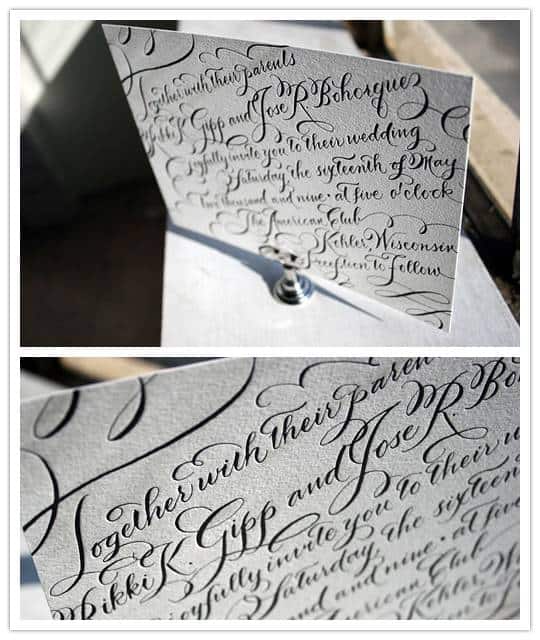 Together with their parents
Nikki K. Gipp and Jose R. Bohorquez
joyfully invite you to their wedding
Saturday, the sixteenth of May
two thousand and nine · at five o'clock
The American Club
Kohler, Wisconsin
reception to follow
Together with their paren
Nikki K. Gipp and Jose R. Bo
joyfully invite you to their w
Saturday, the sixteen
and nine · at five
American Club
Kohler, W